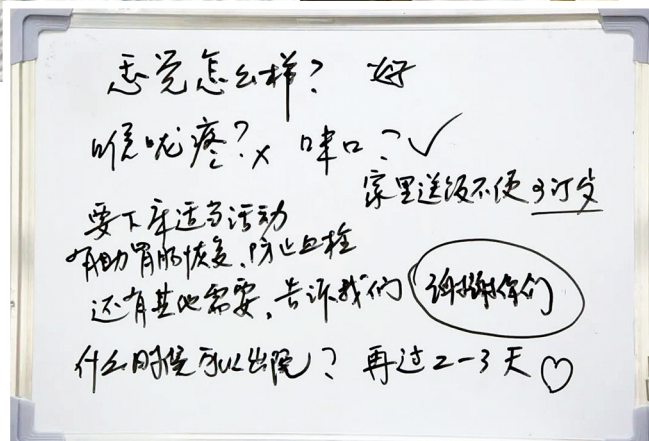 感觉怎么样？ 好
喉咙疼？× 哮口？✓
家里送饭不便 可订
要下床适当活动
有助胃肠恢复、防止血栓
还有其他需要，告诉我们 谢谢你们
什么时候可以出院？ 再过2-3天♡